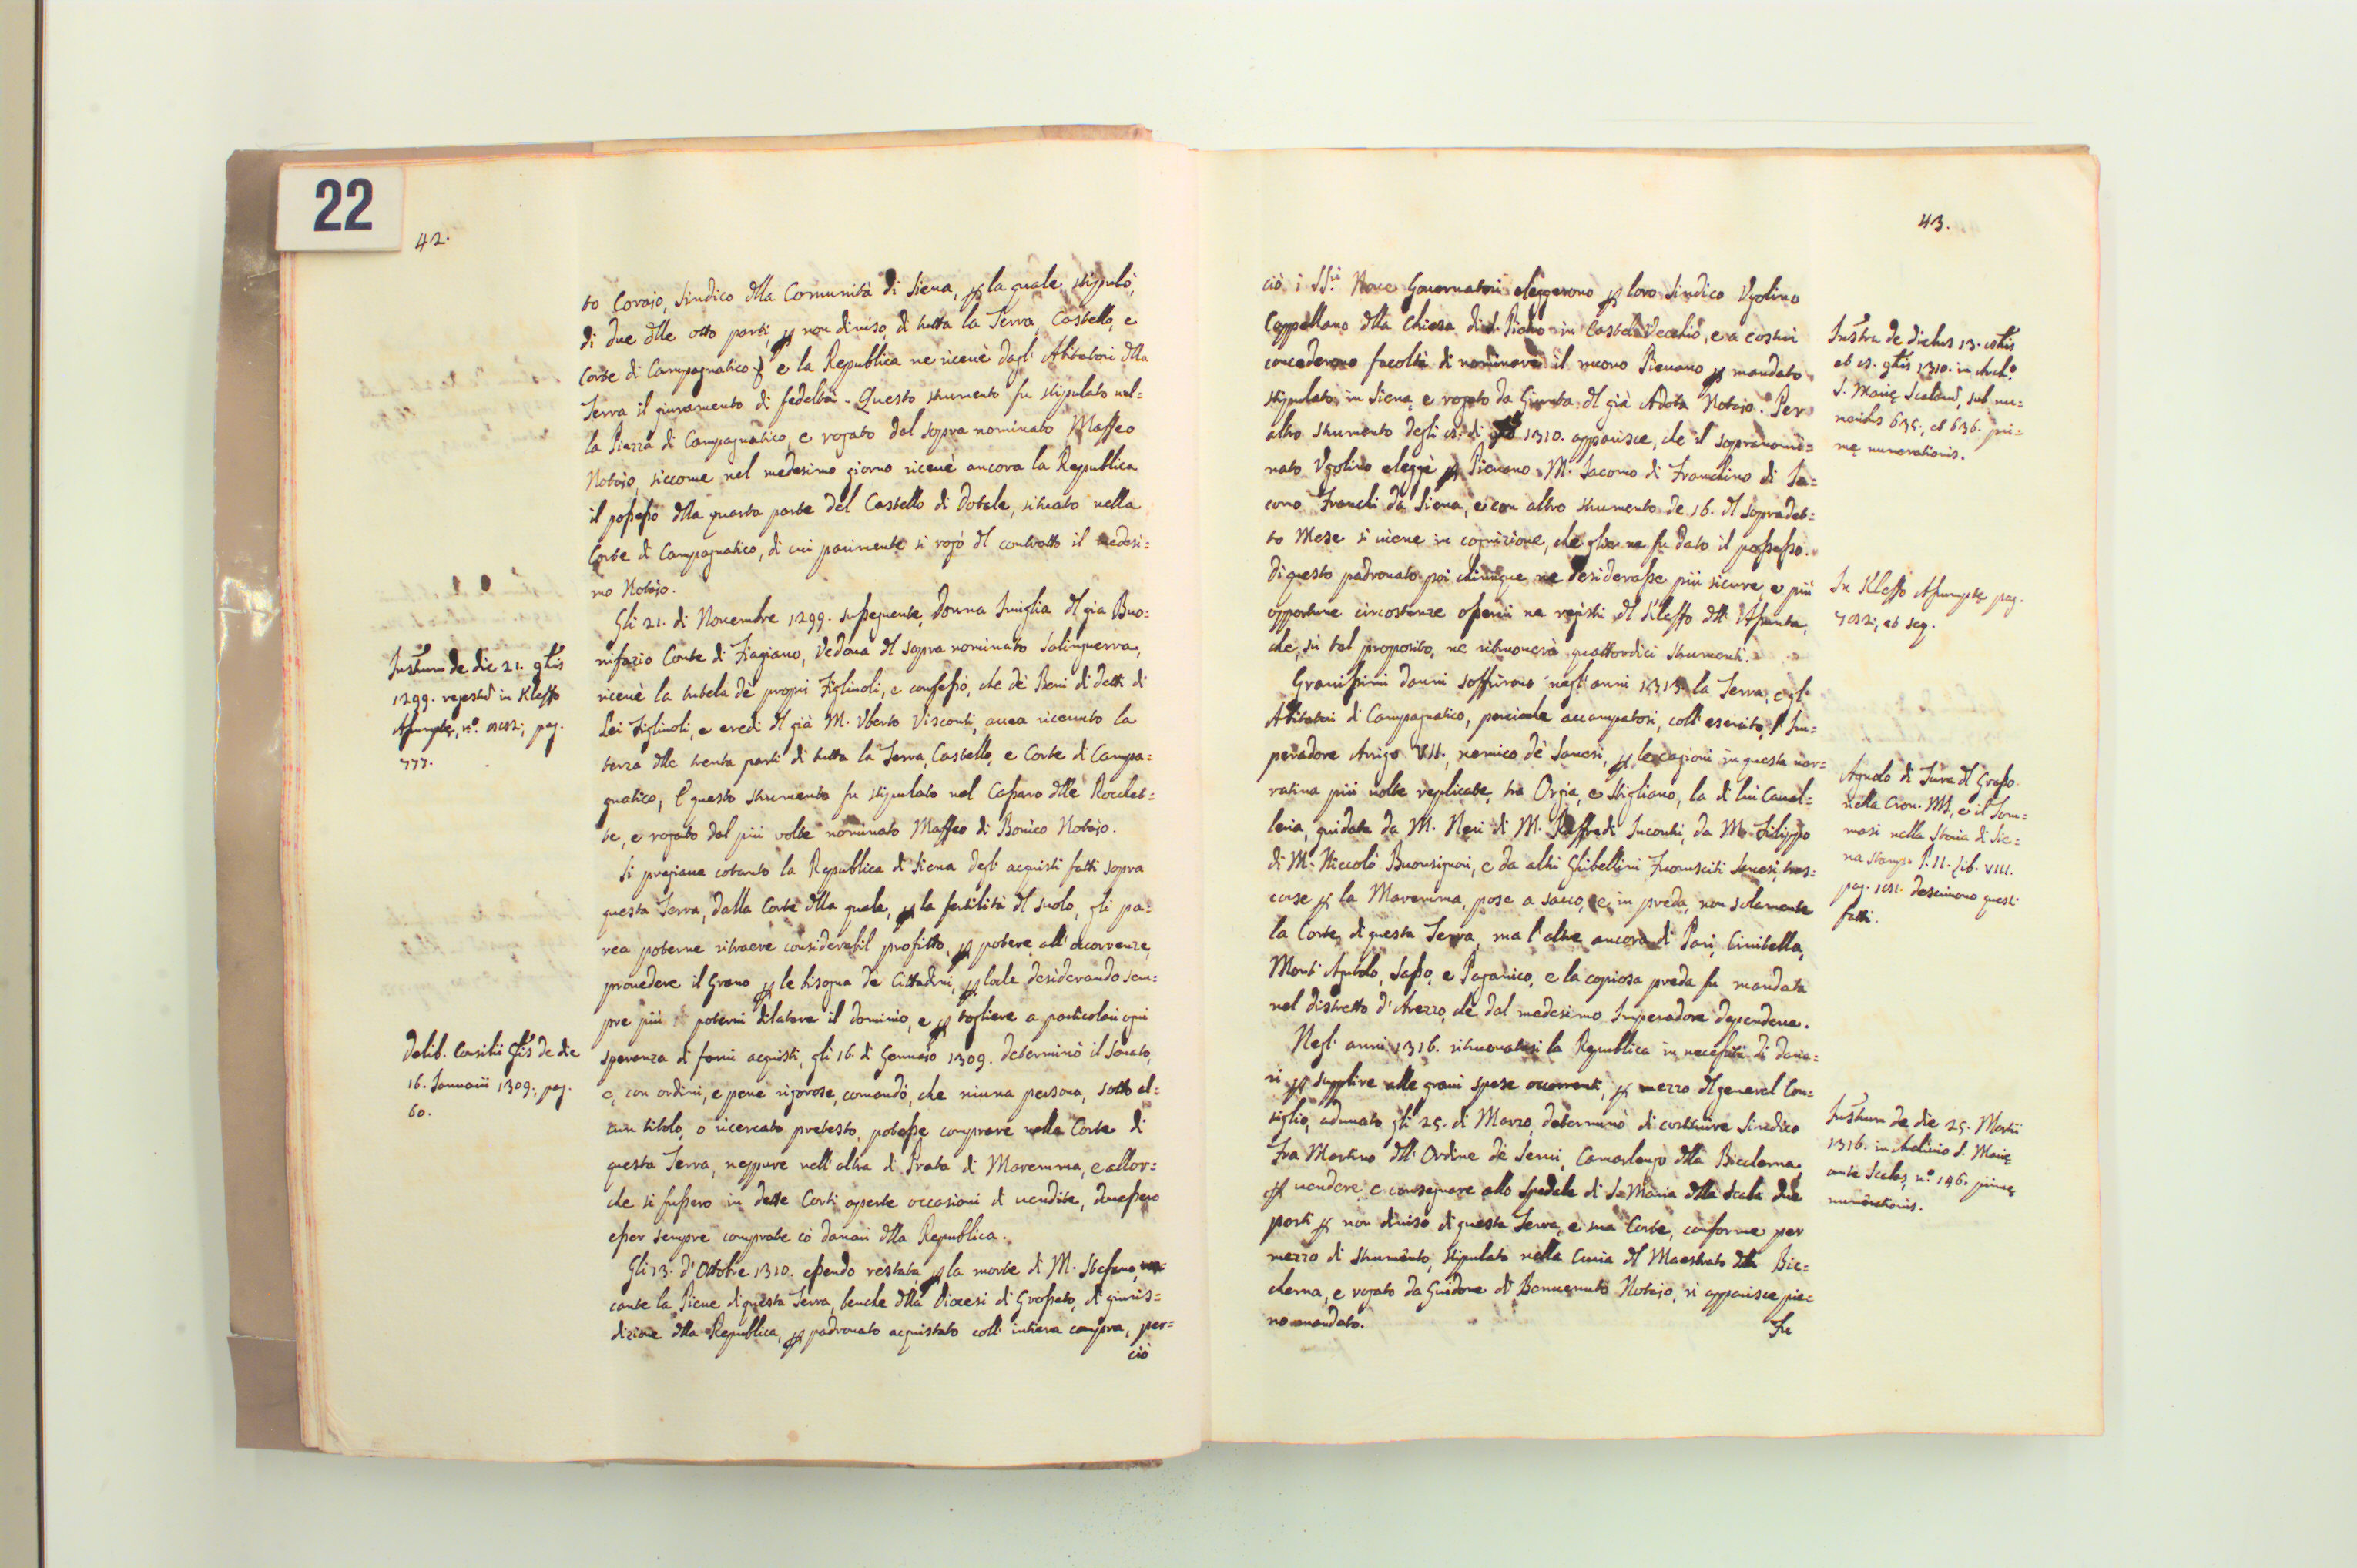 22
42.
to Corajo, Sindico dlla Comunità di Siena, p la quale stipulò,
di due dlle otto parti, p non diviso, di tutta la Terra, Castello, e
Corte di Campagnatico, e la Republica ne ricevè dagl' Abitatori dlla
Terra il giuramento di fedeltà. Questo strumento fu stipulato nel=
la Piazza di Campagnatico, e rogato dal sopra nominato Maffeo
Notajo, siccome nel medesimo giorno ricevè ancora la Republica
il possesso dlla quarta parte del Castello di Dotale, situato nella
Corte di Campagnatico, di cui parimente si rogò dl contratto il medesi=
mo Notajo.
Gli 21. di Novembre 1299. susseguente, Donna Imiglia dl già Buo=
nifazio Conte di Fragiano, Vedova dl sopra nominato Salinguerra,
ricevè la tutela dè propri Figliuoli, e confessò, che dè Beni di detti di
Lei Figliuoli, e eredi dl già M. Uberto Visconti, avea ricevuto la
terza dlle trenta parti di tutta la Terra, Castello, e Corte di Campa=
gnatico, E questo strumento fu stipulato nel Cassaro dlle Rocchet=
te, e rogato dal più volte nominato Maffeo di Bonico Notajo.
Instrum de die 21. gbris
1299. regestũ in Kleffo
Assumptę, nº. pag.
777.
Si pregiava cotanto la Republica di Siena degl' acquisti fatti sopra
questa Terra, dalla Corte dlla quale, p la fertilità dl suolo, gli pa=
rea poterne ritraere considerabil profitto, p potere, all' occorrenze,
provedere il Grano p le bisogna dè Cittadini, p loche desiderando sem=
pre più potervi dilatare il dominio, e p togliere a particolari ogni
speranza di farvi acquisti, gli 16. di Gennajo 1309. determinò il Senato,
e, con ordini, e pene rigorose, comandò, che niuna persona, sotto al=
cun titolo, o ricercato pretesto, potesse comprare nella Corte di
questa Terra, neppure nell' altra di Prata di Maremma, e allor=
che si fussero in dette Corti aperte occasioni di vendite, dovessero
esser sempre comprate cò danari dlla Republica.
Delib. Consilii Glis de die
16. Januarii 1309. pag.
60.
Gli 13. d' Ottobre 1310. essendo restata, p la morte di M. Stefano, va=
cante la Pieve di questa Terra, benche dlla Diocesi di Grosseto, di giuris=
dizione dlla Republica, p padronato acquistato coll' intiera compra, per=
ciò
43.
ciò i SSri. Nove Governatori eleggerono p loro Sindico Ugolino
Cappellano dlla Chiesa di S. Pietro in Castel Vecchio, e a costui
concederono facoltà di nominare il nuovo Pievano p mandato
stipulato in Siena, e rogato da Giunta dl già Adota Notajo. Per
altro strumento degli di 1310. apparisce, che il sopranomi=
nato Ugolino eleggè p Pievano M. Jacomo di Franchino di Ja=
como Franchi da Siena, e con altro strumento de 16. dl sopradet=
to Mese si viene in cognizione, che glie ne fu dato il possesso.
Di questo padronato poi chiunque ne desiderasse più sicure, e più
opportune circostanze osservi ne registri dl Kleffo dll' Assunta,
che, sù tal proposito, ne ritroverà quattordici strumenti.
Instru de diebus 13. 8bris
et gbris 1310. in Archo.
S. Marię Scalarũ, sub nu=
meribus 635., et 636. pri=
mę numerationis.
Ix Kleffo Assumptę pag.
et seq.
Gravissimi danni soffrirono negl' anni 1313. la Terra, e gl'
Abitatori di Campagnatico, perciochè accampatosi, coll' esercito, l' Im=
peradore Arrigo VII., nemico dè Sanesi, p le cagioni in questa nar=
rativa più volte replicate, tra Orgia, e Stigliano, la di lui Caval=
leria, guidata da M. Neri di M. Paffredi Incontri, da M. Filippo
di M. Niccolò Buonsignori, e da altri Ghibellini Fuorusciti Senesi, tras=
corse p la Maremma, pose a sacco, e, in preda, non solamente
la Corte di questa Terra, ma l' altre ancora di Pari, Civitella,
Monti Agutolo, Sasso, e Paganico, e la copiosa preda fu mandata
nel distretto d' Arezzo, che dal medesimo Imperadore dependeva.
Agnolo di Tura dl Grasso
nella Cron. MS., e il Tom=
masi nella Storia di Sie=
na stamp. P. II. Lib. VIII.
pag. descrivono questi
fatti.
Negl' anni 1316. ritrovatasi la Republica in necessità di dana=
ri p supplire alle gravi spese occorrenti, p mezzo dl general Con=
siglio, adunato gli 25. di Marzo, determinò di costituire Sindico
Fra Martino dll' Ordine dè Servi, Camarlengo dlla Biccherna,
p vendere, e consegnare allo Spedale di S. Maria dlla Scala due
parti p non diviso di questa Terra, e sua Corte, conforme per
mezzo di strumento, stipulato nella Curia dl Maestrato dlla Bic=
cherna, e rogato da Guidone di Benvenuto Notajo, ri apparisce pie=
no mandato.
Fu
Instrum de die 25. Martii
1316. in Archivio S. Marię
ante Scalas, nº. 146. primę
numerationis.